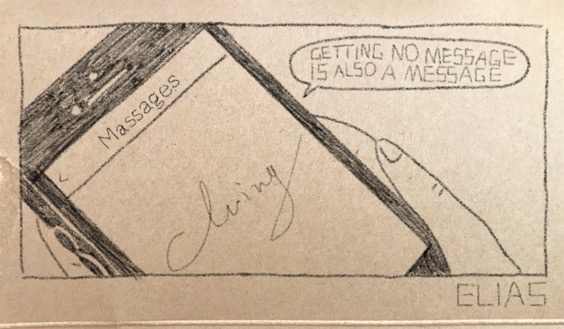 GETTING NO MESSAGE
IS ALSO A MESSAGE
< Massages
ELIAS